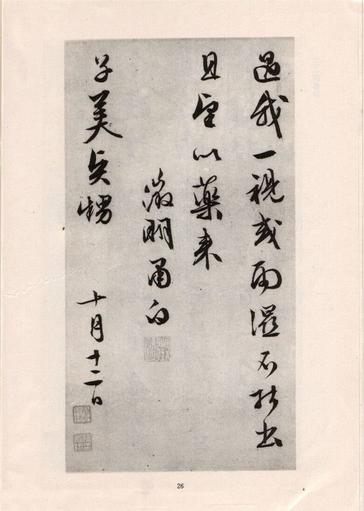 過我一視或雨濕不能出
且望以藥来
徵明白
子美賢甥 十月十二日
26